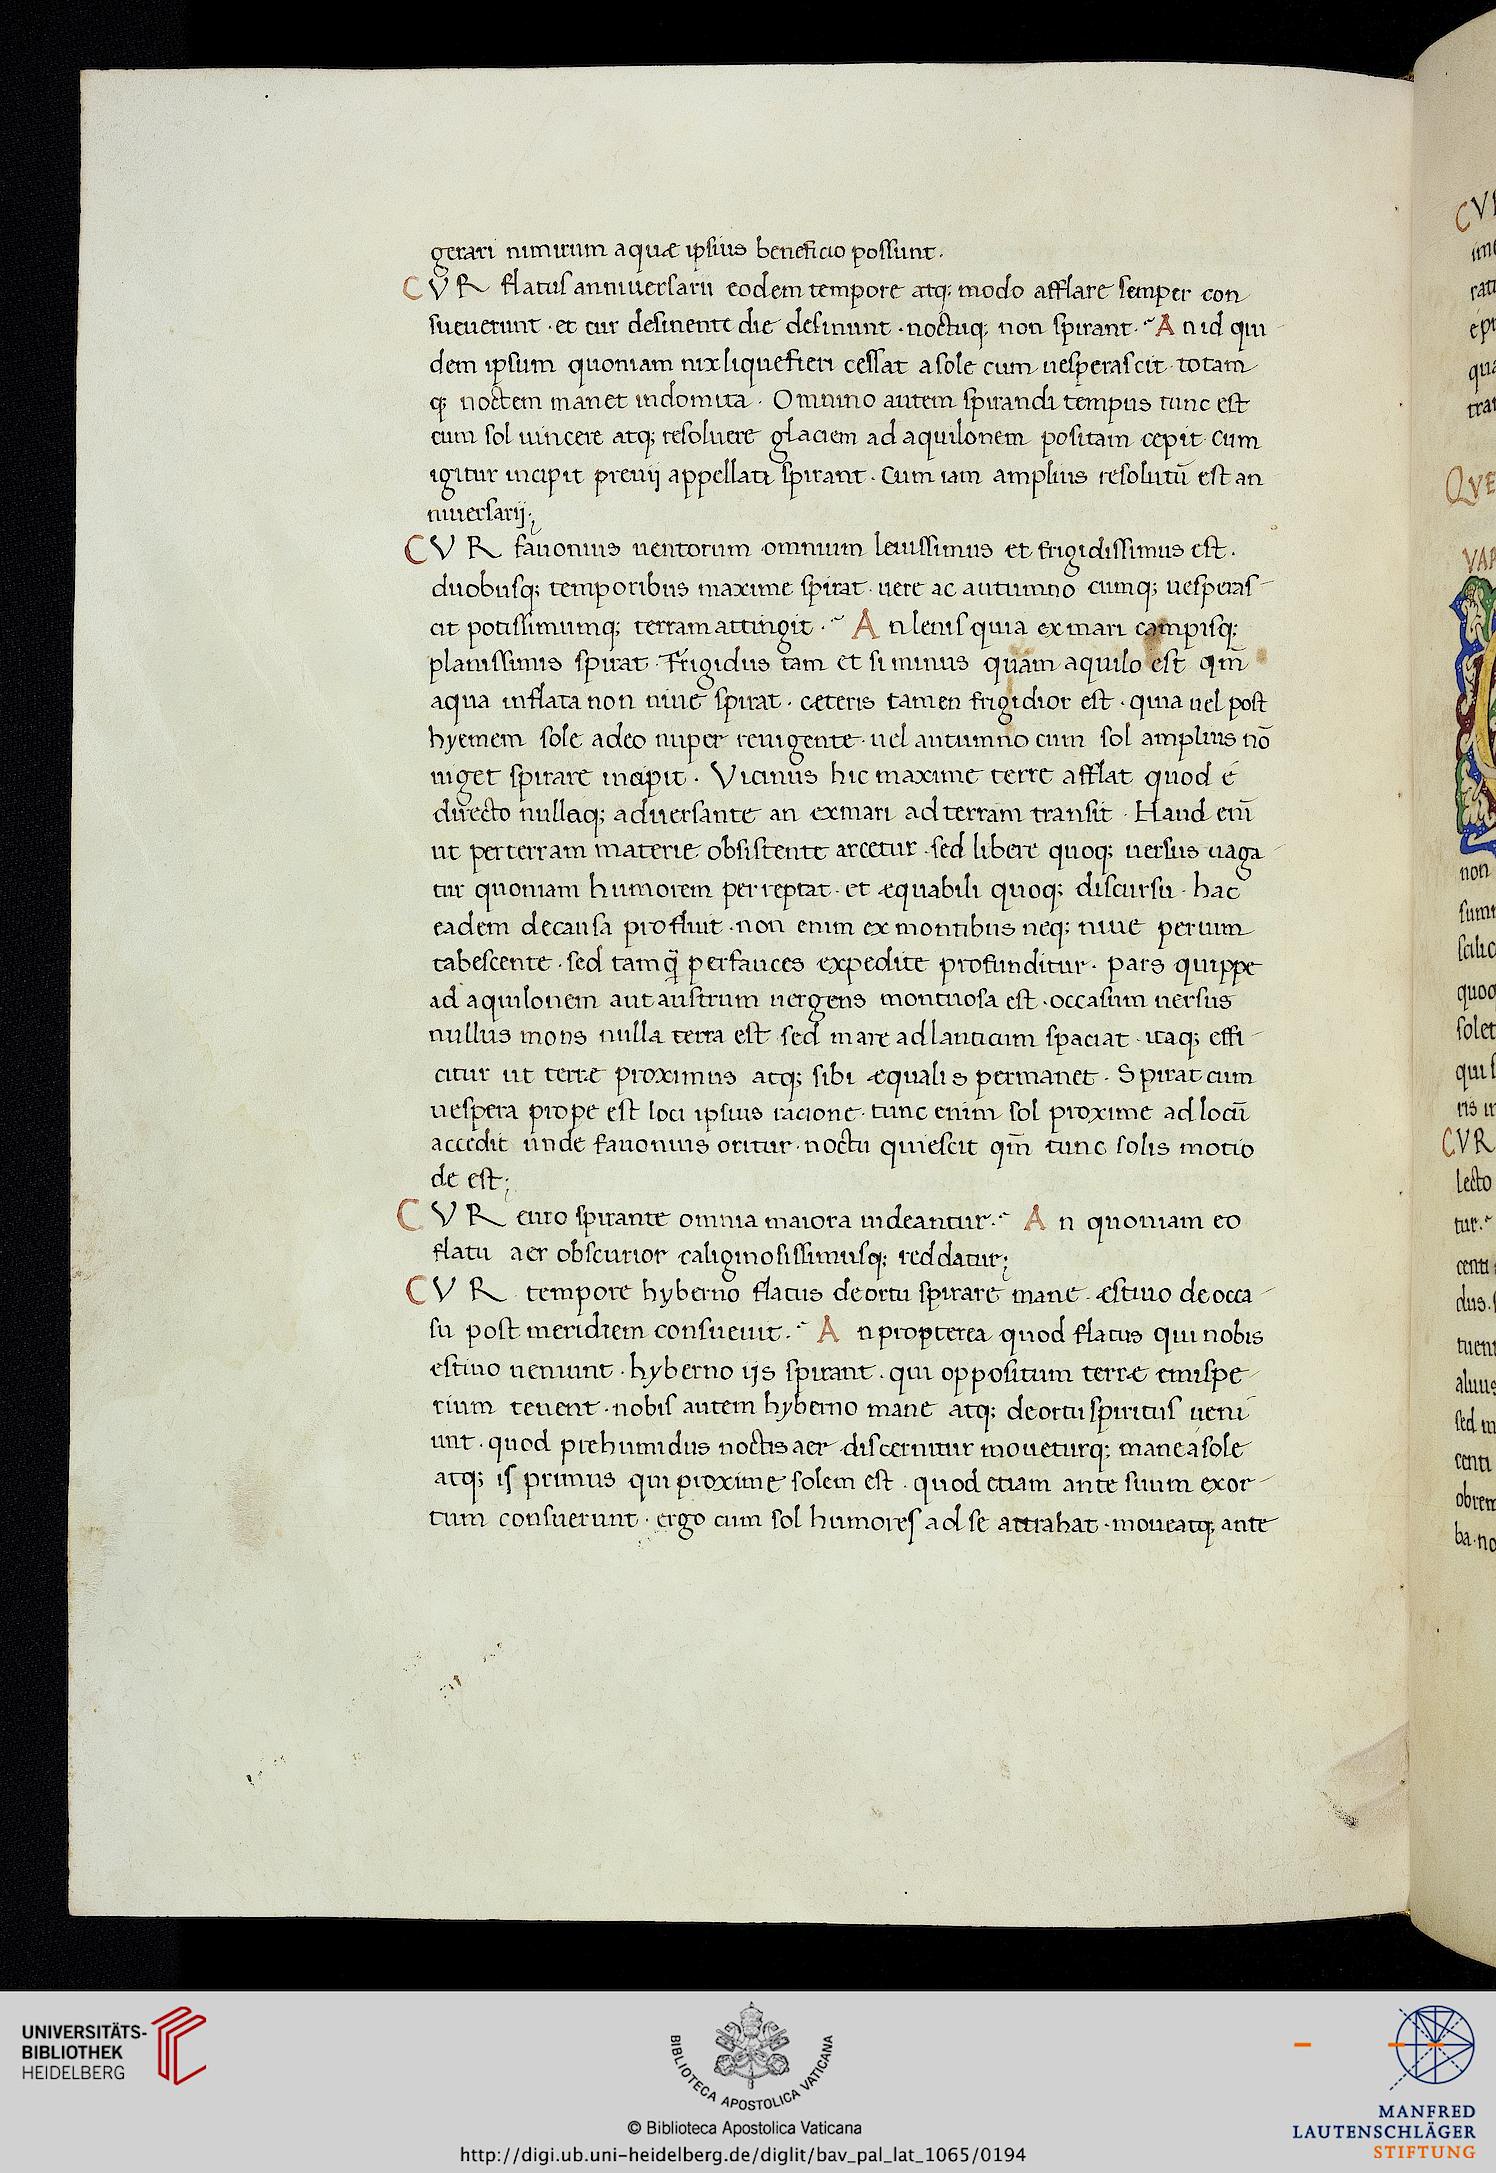 gerari nimirum aquæ ipsius beneficio possunt.
CVR flatus anniuersarii eodem tempore atq; modo afflare semper con
sueuerunt · et cur desinente die desinunt · noctuq; non spirant. An id qui
dem ipsum quoniam nix liquefieri cessat a sole cum uesperascit · totam
q; noctem manet indomita · Omnino autem spirandi tempus tunc est
cum sol uincere atq; resoluere glaciem ad aquilonem positam cepit · cum
igitur incipit preuij appellati spirant · Cum iam amplius resolutū est an
niuersarij;
CVR fauonius uentorum omnium leuissimus et frigidissimus est ·
duobusq; temporibus maxime spirat · uere ac autumno cumq; uesperas
cit potissimumq; terram attingit · An lenis quia ex mari campisq;
planissimis spirat · Frigidus tam et si minus quam aquilo est qm̄
aqua inflata non niue spirat · cæteris tamen frigidior est · quia uel post
hyemem sole adeo nuper reuigente · uel autumno cum sol amplius nō
uiget spirare incipit · Vicinus hic maxime terre afflat quod ē
directo nullaq; aduersante an ex mari ad terram transit · Haud eni͂
ut per terram materie obsistente arcetur · sed libere quoq; uersus uaga
tur quoniam humorem perreptat · et æquabili quoq; discursu · hac
eadem de causa profluit · non enim ex montibus neq; niue per uim
tabescente · sed tamq̄ per fauces expedite profunditur · pars quippe
ad aquilonem aut austrum uergens montuosa est · occasum uersus
nullus mons nulla terra est sed mare adlanticum spaciat · itaq; effi
citur ut terræ proximus atq; sibi æqualis permanet · Spirat cum
uespera prope est loci ipsius racione · tunc enim sol proxime ad locū
accedit unde fauonius oritur · noctu quiescit qm̄ tunc solis motio
de est;
CVR euro spirante omnia maiora uideantur. An quoniam eo
flatu aer obscurior caliginosissimusq; reddatur;
CVR tempore hyberno flatus de ortu spirare mane · æstiuo de occa
su post meridiem consueuit. An propterea quod flatus qui nobis
estiuo ueniunt · hyberno ijs spirant · qui oppositum terræ emispe
rium tenent · nobis autem hyberno mane atq; de ortu spiritus ueni
unt · quod prehumidus noctis aer discernitur moueturq; mane a sole
atq; is primus qui proxime solem est · quod etiam ante suum exor
tum consuerunt · ergo cum sol humores ad se attrahat · moueatq; ante
UNIVERSITÄTS-
BIBLIOTHEK
HEIDELBERG
BIBLIOTECA APOSTOLICA VATICANA
© Biblioteca Apostolica Vaticana
http://digi.ub.uni-heidelberg.de/diglit/bav_pal_lat_1065/0194
MANFRED
LAUTENSCHLÄGER
STIFTUNG